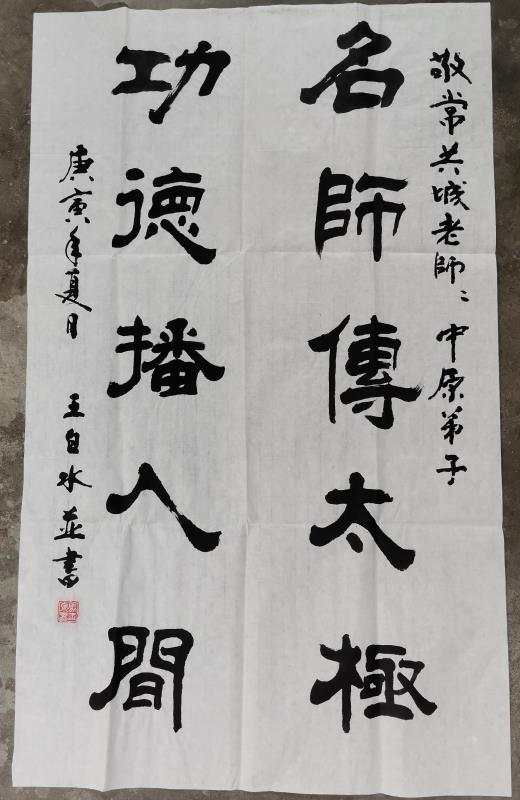 敬常共城老師：中原弟子
名師傳太極
功德播人間
庚寅年夏月 王白水並書